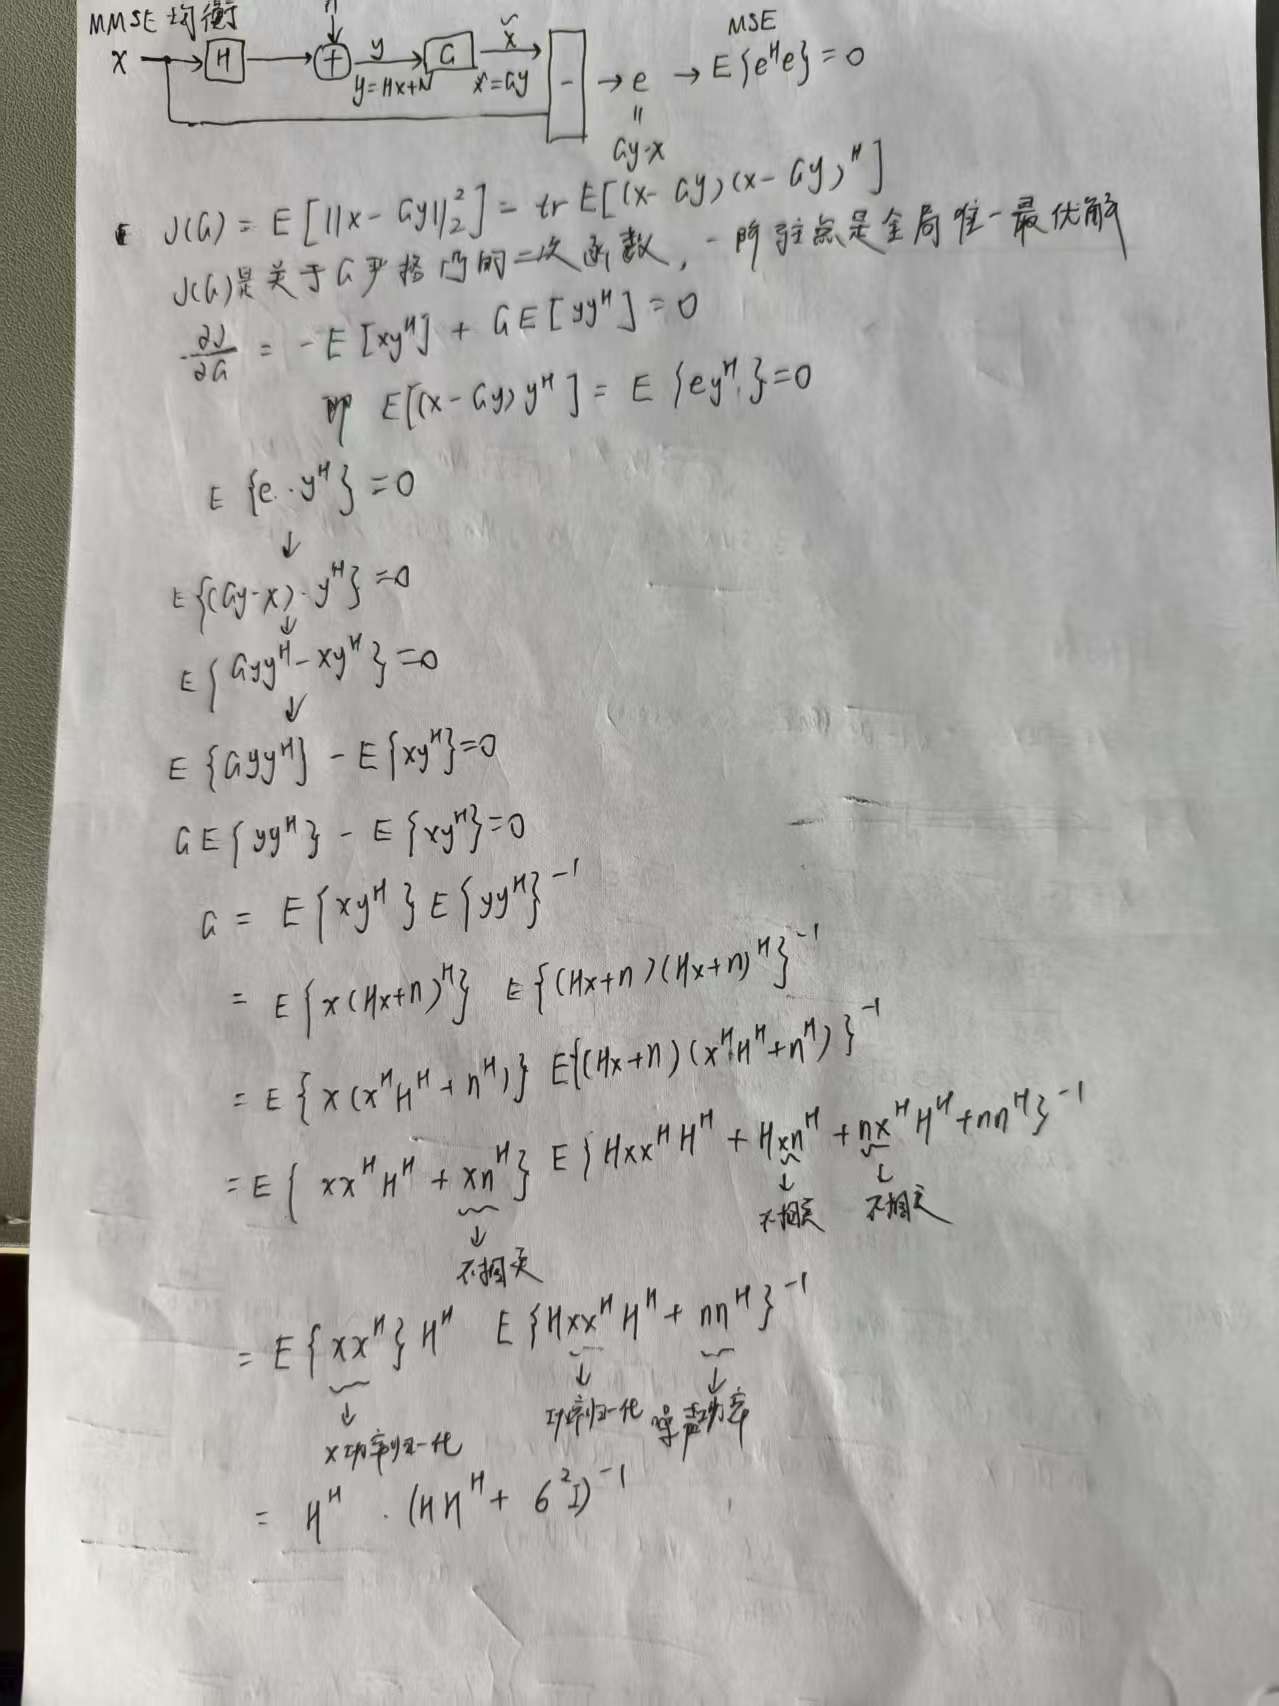 MMSE 均衡
n
MSE
x → H → + y → G x̌ → - → e → E{e^H e} = 0
y=Hx+N x̌=Gy
॥
Gy-x
J(G) = E[||x-Gy||₂²] = tr E[(x-Gy)(x-Gy)^H]
J(G)是关于G严格凸的二次函数,一阶驻点是全局唯一最优解
∂J/∂G = -E[xy^H] + GE[yy^H] = 0
即 E[(x-Gy)y^H] = E{ey^H}=0
E{e·y^H}=0
↓
E{(Gy-x)·y^H}=0
↓
E{Gyy^H-xy^H}=0
↓
E{Gyy^H} - E{xy^H}=0
GE{yy^H} - E{xy^H}=0
G = E{xy^H}E{yy^H}^-1
= E{x(Hx+n)^H} E{(Hx+n)(Hx+n)^H}^-1
= E{x(x^H H^H+n^H)} E{(Hx+n)(x^H H^H+n^H)}^-1
= E{xx^H H^H + xn^H} E{Hxx^H H^H + Hxn^H + nx^H H^H + nn^H}^-1
↓ ↓
不相关 不相关
↓
不相关
= E{xx^H}H^H E{Hxx^H H^H + nn^H}^-1
↓ ↓ ↓
x功率归一化 功率归一化 噪声功率
= H^H · (HH^H + 6²I)^-1